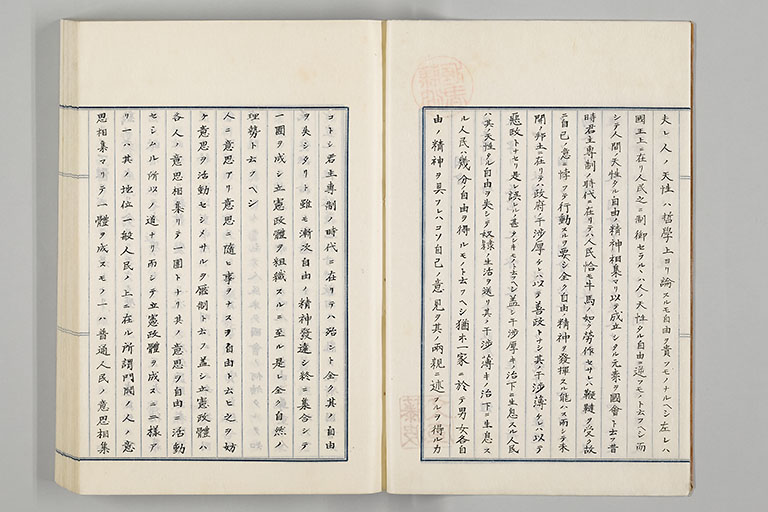 夫レ人ノ天性ハ哲學上ヨリ論スルモ自由ヲ貴フモノナルヘシ左レハ
國王上ニ在リ人民之ニ制御セラルヽハ人ノ天性タル自由ニ逆フモノト云フヘシ而
シテ人間ノ天性タル自由ノ精神相集マリ以テ成立シタル元素ヲ國會ト云フ昔
時君主專制ノ時代ニ在リテハ人民恰モ牛馬ノ如ク勞作セサレハ鞭韃ヲ受ク故
ニ自己ノ意ニ悖フテ行動スルヲ要シ全ク自由ノ精神ヲ發揮スル能ハス而シテ未
開ノ邦土ニ在リテハ政府ノ干涉厚ケレハ以テ善政トナシ其ノ干涉薄ケレハ以テ
惡政トナセリ是レ誤レルノ甚タシキモノト云フヘシ盖シ干涉厚キノ治下ニ生息スル人民
ハ其ノ天性タル自由ヲ失シテ奴隸ノ生活ヲ送リ其ノ干涉薄キノ治下ニ生息ス
ル人民ハ幾分ノ自由ヲ得ルモノト云フヘシ猶ホ一家ニ於テ男女各自
由ノ精神ヲ具フレハコソ自己ノ意見ヲ其ノ兩親ニ述フルヲ得ルカ
コトシ君主專制ノ時代ニ在リテハ殆ント全ク其ノ自由
ヲ失シタリト雖モ漸次自由ノ精神發達シ終ニ集合シテ
一團ヲ成シ立憲政體ヲ組織スルニ至ル是レ全ク自然ノ
理勢ト云フヘシ
人ニ意思アリ意思ニ隨ヒ事ヲナスヲ自由ト云ヒ之ヲ妨
ケ意思ヲ活動セシメサルヲ壓制ト云フ盖シ立憲政體ハ
各人ノ意思相集リテ一團トナリ其ノ意思ヲ自由ニ活動
セシムル所以ノ道ナリ而シテ立憲政體ヲ成スニ二樣ア
リ一ハ其ノ地位一般人民ノ上ニ在ル所謂門閥ノ人ノ意
思相集マリテ一體ヲ成スモノ一ハ普通人民ノ意思相集